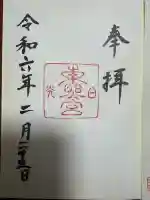 奉拝
日光
東照宮
令和六年二月二十三日